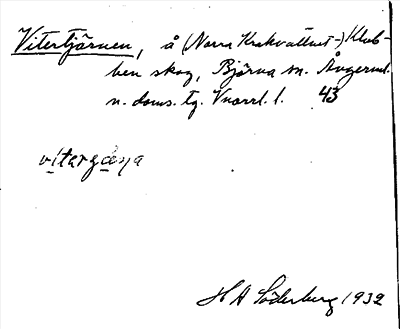 Vitertjärnen, å (Norra Krakvattnet-) Klub-
ben skog, Björna sn. Ångerml.
n. doms. tg. Vnorrl. l. 43
vitarɡæṇa
H A Söderberg 1932